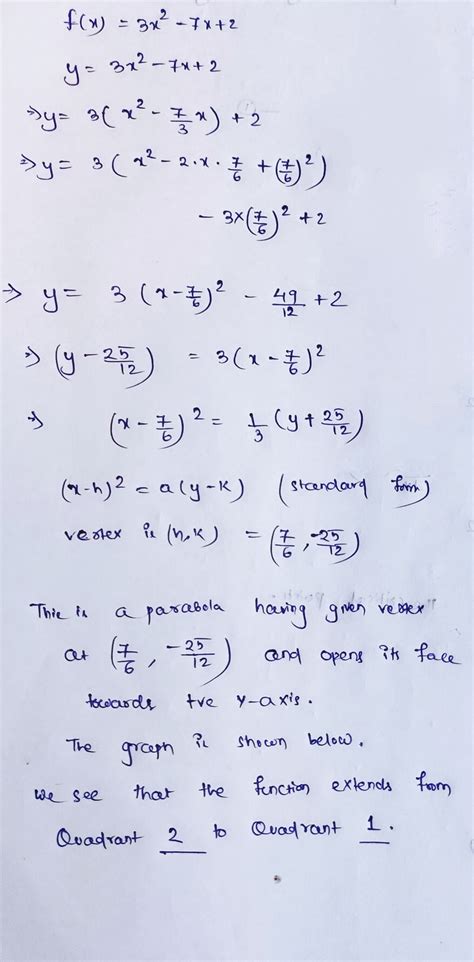 f(x) = 3x² - 7x + 2
y = 3x² - 7x + 2
⇒ y = 3(x² - 7/3 x) + 2
⇒ y = 3(x² - 2·x·7/6 + (7/6)²)
- 3×(7/6)² + 2
⇒ y = 3(x - 7/6)² - 49/12 + 2
⇒ (y - 25/12) = 3(x - 7/6)²
⇒ (x - 7/6)² = 1/3 (y + 25/12)
(x-h)² = a(y-k) (standard form)
vertex is (h,k) = (7/6, -25/12)
This is a parabola having given vertex
at (7/6, -25/12) and opens its face
towards +ve y-axis.
The graph is shown below.
we see that the function extends from
Quadrant 2 to Quadrant 1.